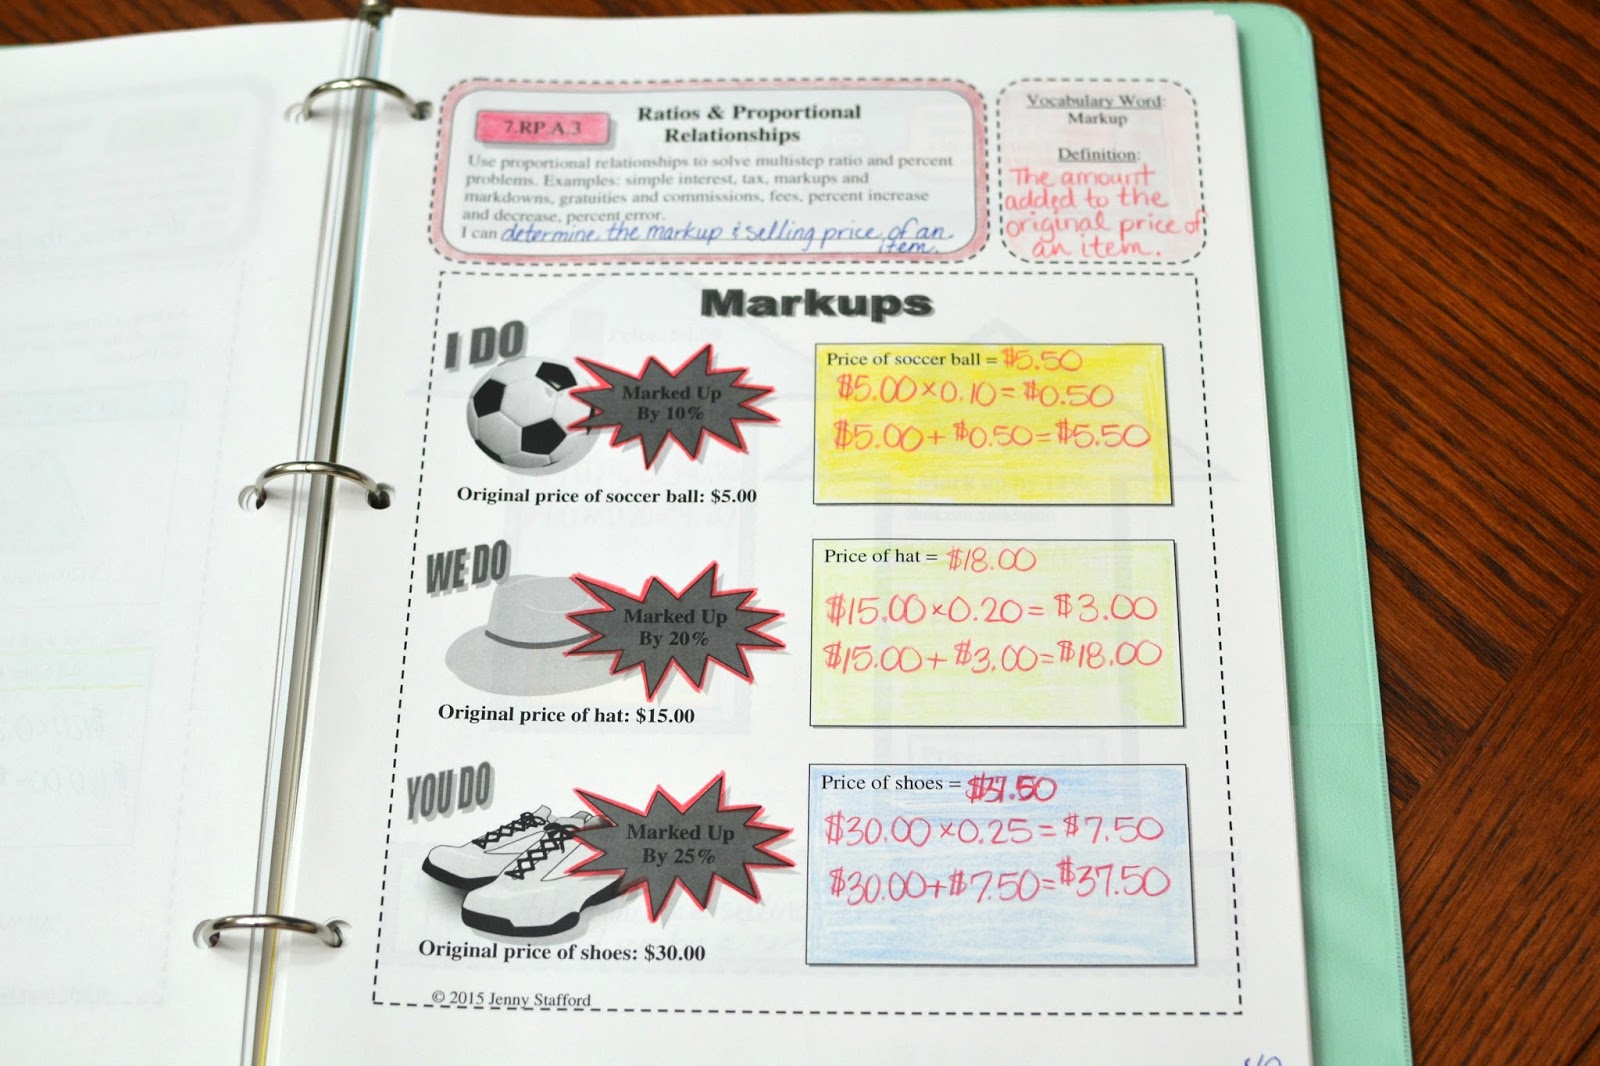 7.RP.A.3
Ratios & Proportional
Relationships
Use proportional relationships to solve multistep ratio and percent
problems. Examples: simple interest, tax, markups and
markdowns, gratuities and commissions, fees, percent increase
and decrease, percent error.
I can determine the markup & selling price of an
item.
Vocabulary Word:
Markup
Definition:
The amount
added to the
original price of
an item.
Markups
I DO
Marked Up
By 10%
Original price of soccer ball: $5.00
Price of soccer ball = $5.50
$5.00 × 0.10 = $0.50
$5.00 + $0.50 = $5.50
WE DO
Marked Up
By 20%
Original price of hat: $15.00
Price of hat = $18.00
$15.00 × 0.20 = $3.00
$15.00 + $3.00 = $18.00
YOU DO
Marked Up
By 25%
Original price of shoes: $30.00
Price of shoes = $37.50
$30.00 × 0.25 = $7.50
$30.00 + $7.50 = $37.50
© 2015 Jenny Stafford